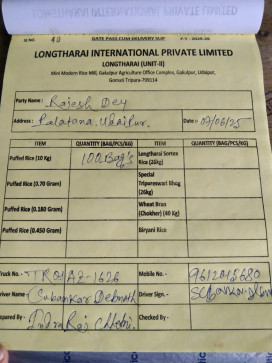 SL NO. 40 GATE PASS CUM DELIVERY SLIP F.Y - 2025-26
LONGTHARAI INTERNATIONAL PRIVATE LIMITED
LONGTHARAI (UNIT-II)
Mini Modern Rice Mill, Gakulpur Agriculture Office Complex, Gakulpur, Udaipur,
Gomati Tripura-799114
Party Name : Rajesh Dey
Address : Palatana, Udaipur. Date :- 07/06/25
ITEM QUANTITY (BAG/PCS/KG) ITEM QUANTITY (BAG/PCS/KG)
Puffed Rice (10 Kg) 100 Bag's Longtharai Sortex Rice (26kg)
Puffed Rice (0.70 Gram) Special Tripureswari Bhog (26kg)
Puffed Rice (0.180 Gram) Wheat Bran (Chokher) (40 Kg)
Puffed Rice (0.450 Gram) Biryani Rice
Truck No.- TR01AZ-1626 Mobile No.- 9612015680
Driver Name- Subankar Debnath Driver Sign.-
Prepared By- Indra Checked By-